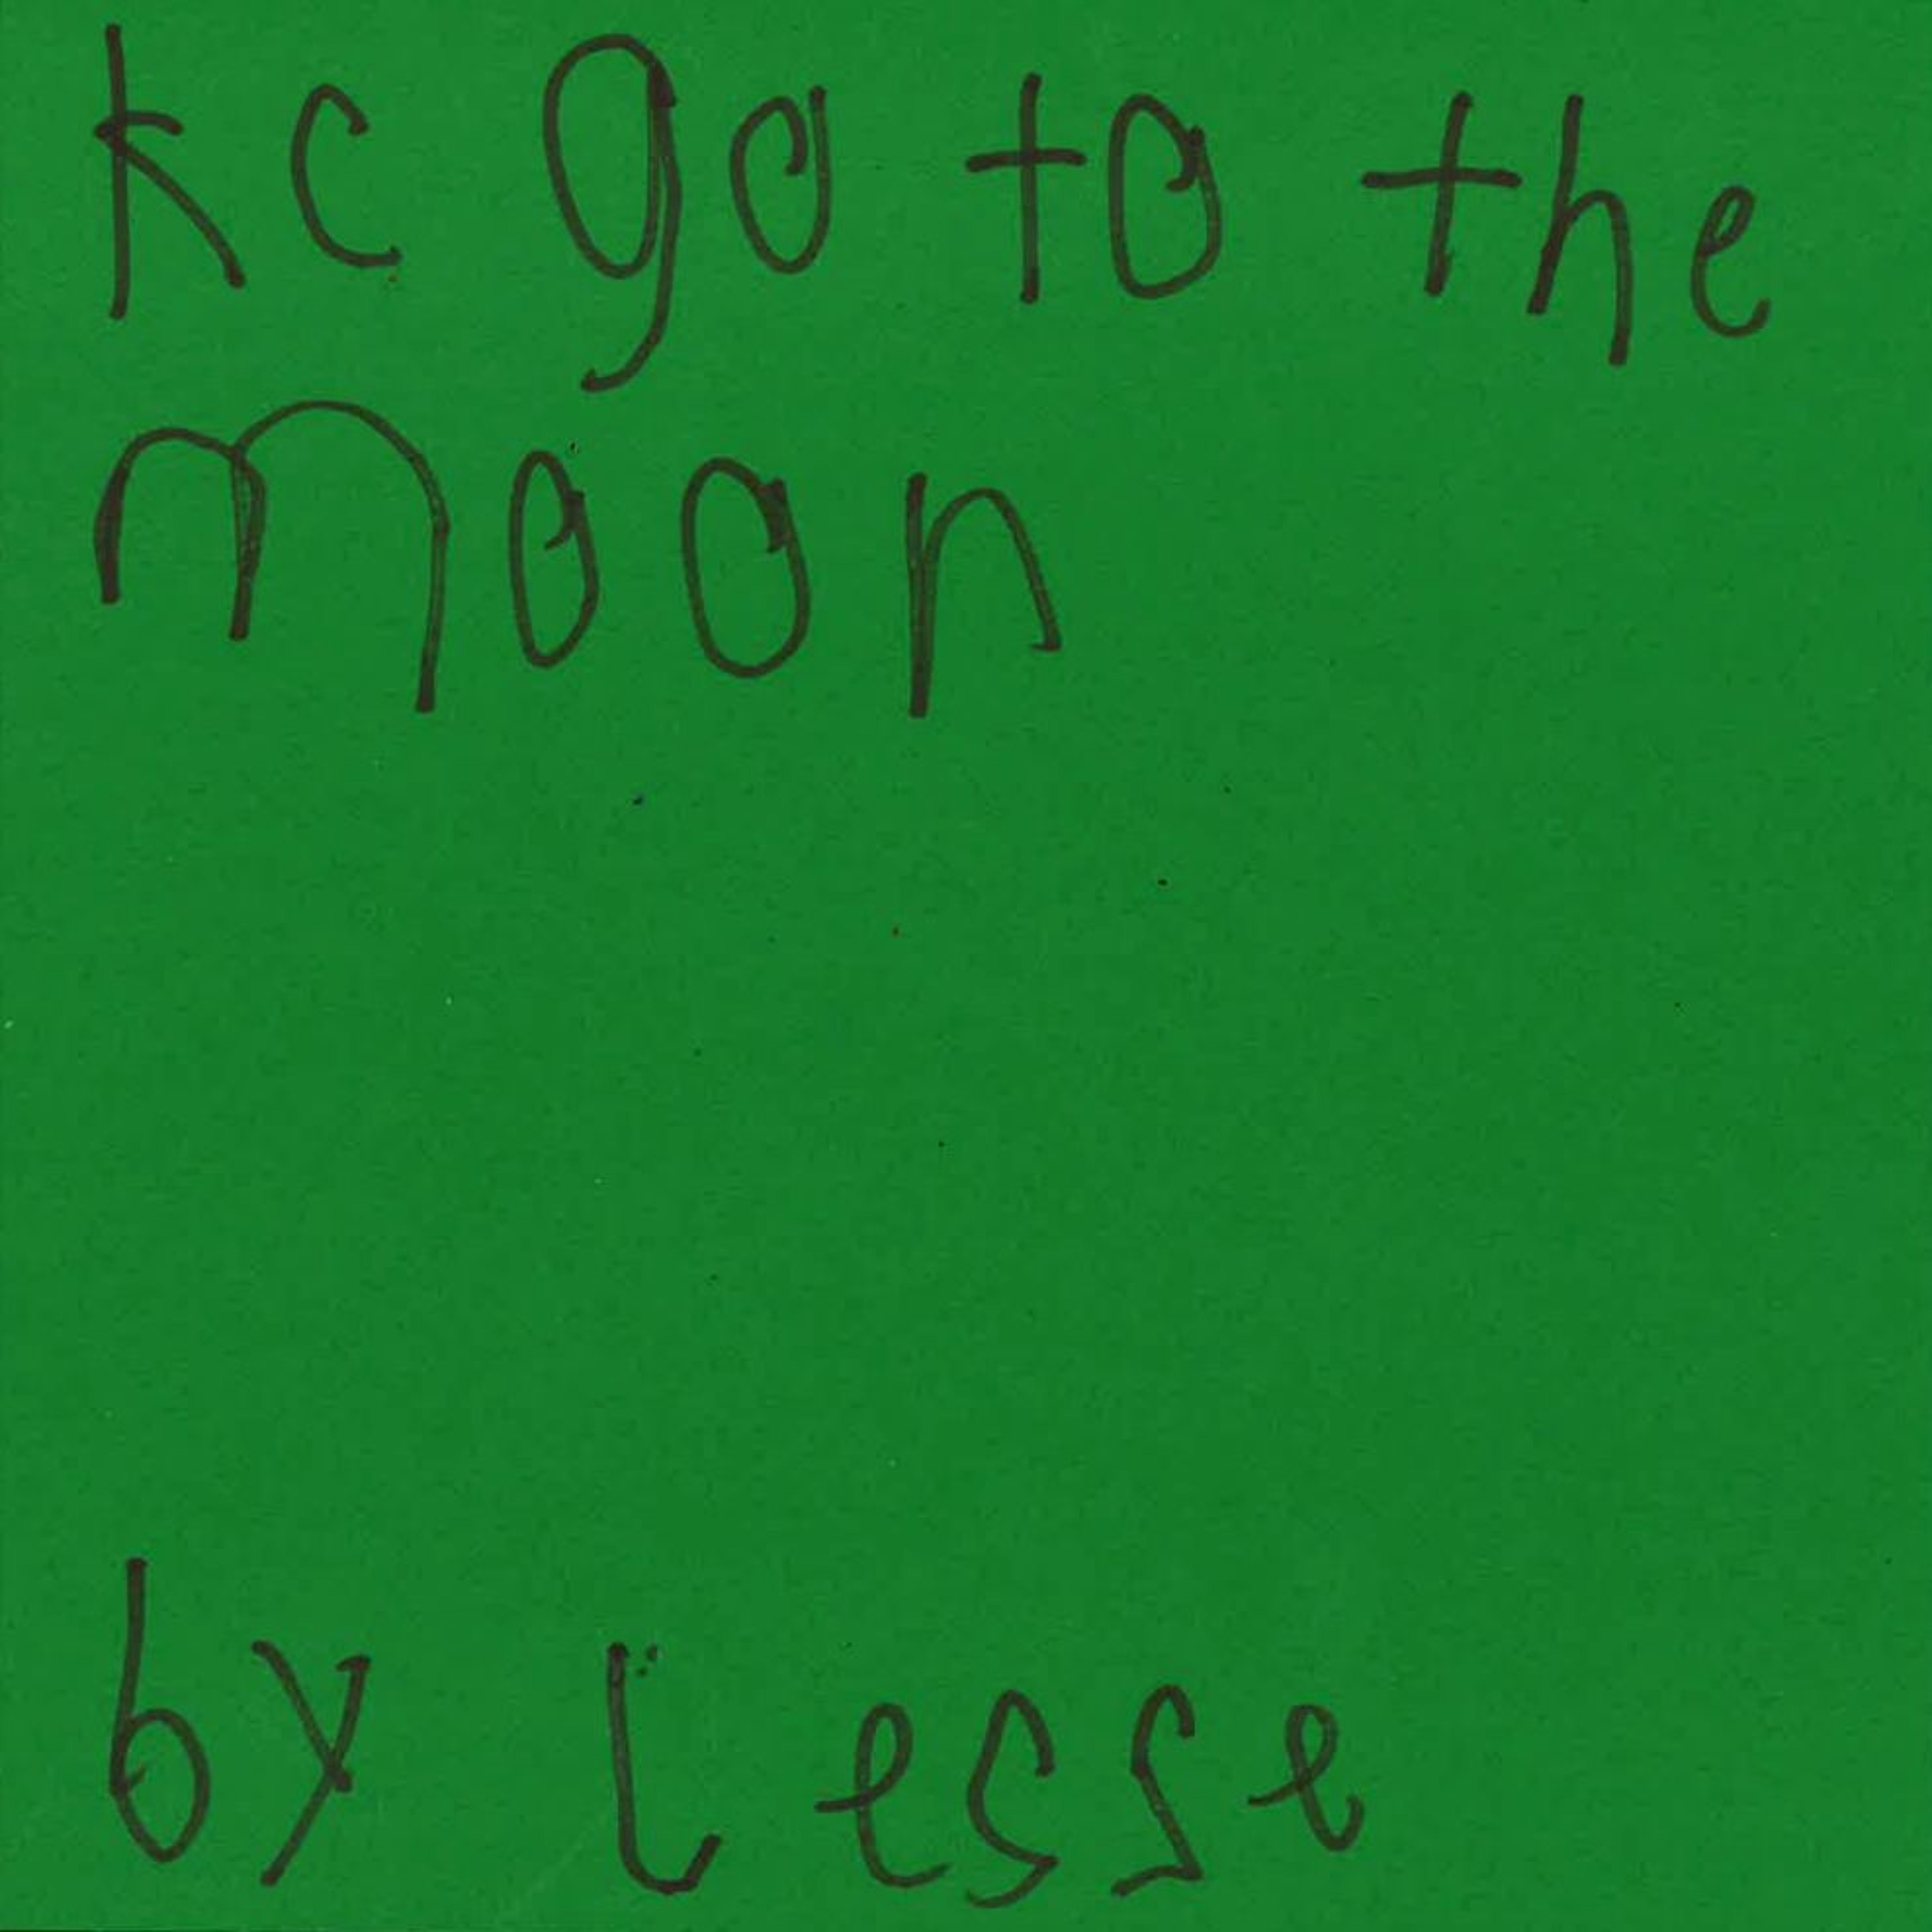 kc go to the
moon
by Lesse